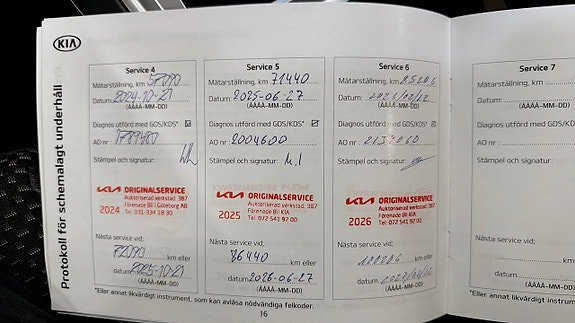 KIA
Protokoll för schemalagt underhåll
Service 4
Mätarställning, km 57090
Datum: 2024-10-21
(ÅÅÅÅ-MM-DD)
Diagnos utförd med GDS/KDS*
AO nr: 1789480
Stämpel och signatur:
KIA ORIGINALSERVICE
Auktoriserad verkstad: 387
2024 Förenade Bil i Göteborg AB
Tel: 031 334 18 30
Nästa service vid;
72090 km eller
datum 2025-10-21
(ÅÅÅÅ-MM-DD)
Service 5
Mätarställning, km 71440
Datum: 2025-06-27
(ÅÅÅÅ-MM-DD)
Diagnos utförd med GDS/KDS*
AO nr: 2004600
Stämpel och signatur: M.I
KIA ORIGINALSERVICE
Auktoriserad verkstad: 387
2025 Förenade Bil KIA
Tel: 072 541 92 00
Nästa service vid;
86440 km eller
datum 2026-06-27
(ÅÅÅÅ-MM-DD)
Service 6
Mätarställning, km
Datum:
(ÅÅÅÅ-MM-DD)
Diagnos utförd med GDS/KDS*
AO nr:
Stämpel och signatur:
KIA ORIGINALSERVICE
Auktoriserad verkstad: 387
2026 Förenade Bil KIA
Tel: 072 541 92 00
Nästa service vid;
km eller
datum
(ÅÅÅÅ-MM-DD)
Service 7
Mätarställning, km
Datum:
(ÅÅÅÅ-MM-DD)
Diagnos utförd med
AO nr:
Stämpel och signatur:
Nästa service vid;
datum
*Eller annat likvärdigt instrument, som kan avläsa nödvändiga felkoder.
*Eller annat likvärdigt instru
16